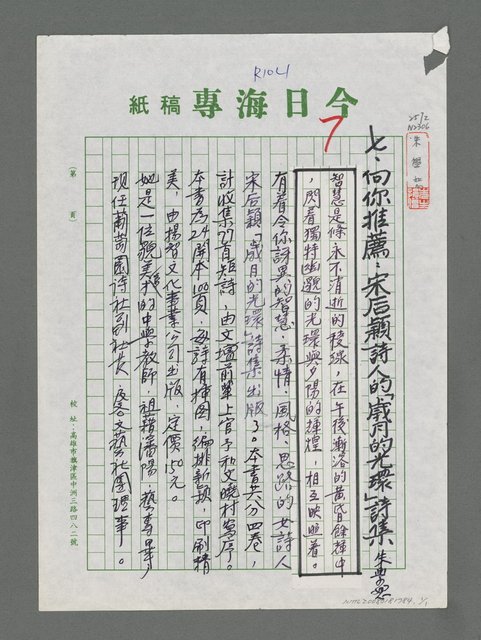 R104
今日海專稿紙
7
2512
N2306
朱學恕
七、向你推薦:宋后穎詩人的「歲月的光環」詩集 朱學恕
智慧是條永不消逝的稜線,在午後漸落的黃昏餘暉中
,閃着獨特幽邈的光環與夕陽的輝煌,相互映照着。
有着令你訝異的智慧、柔情、風格、思路的女詩人
宋后穎「歲月的光環」詩集出版了。本書共分四卷,
計收集77首短詩,由文壇前輩上官予和文曉村寫序。
本書為24開本100頁,每詩有插圖,編排新穎,印刷精
美,由揚智文化事業公司出版,定價150元。
她是一位貌美才俊的中學教師,祖籍瀋陽,藝專畢,
現任葡萄園詩社副社長,廣文藝社團理事。
(第 頁)
校址:高雄市旗津區中洲三路四八二號
NMTL20080181984, 1/1